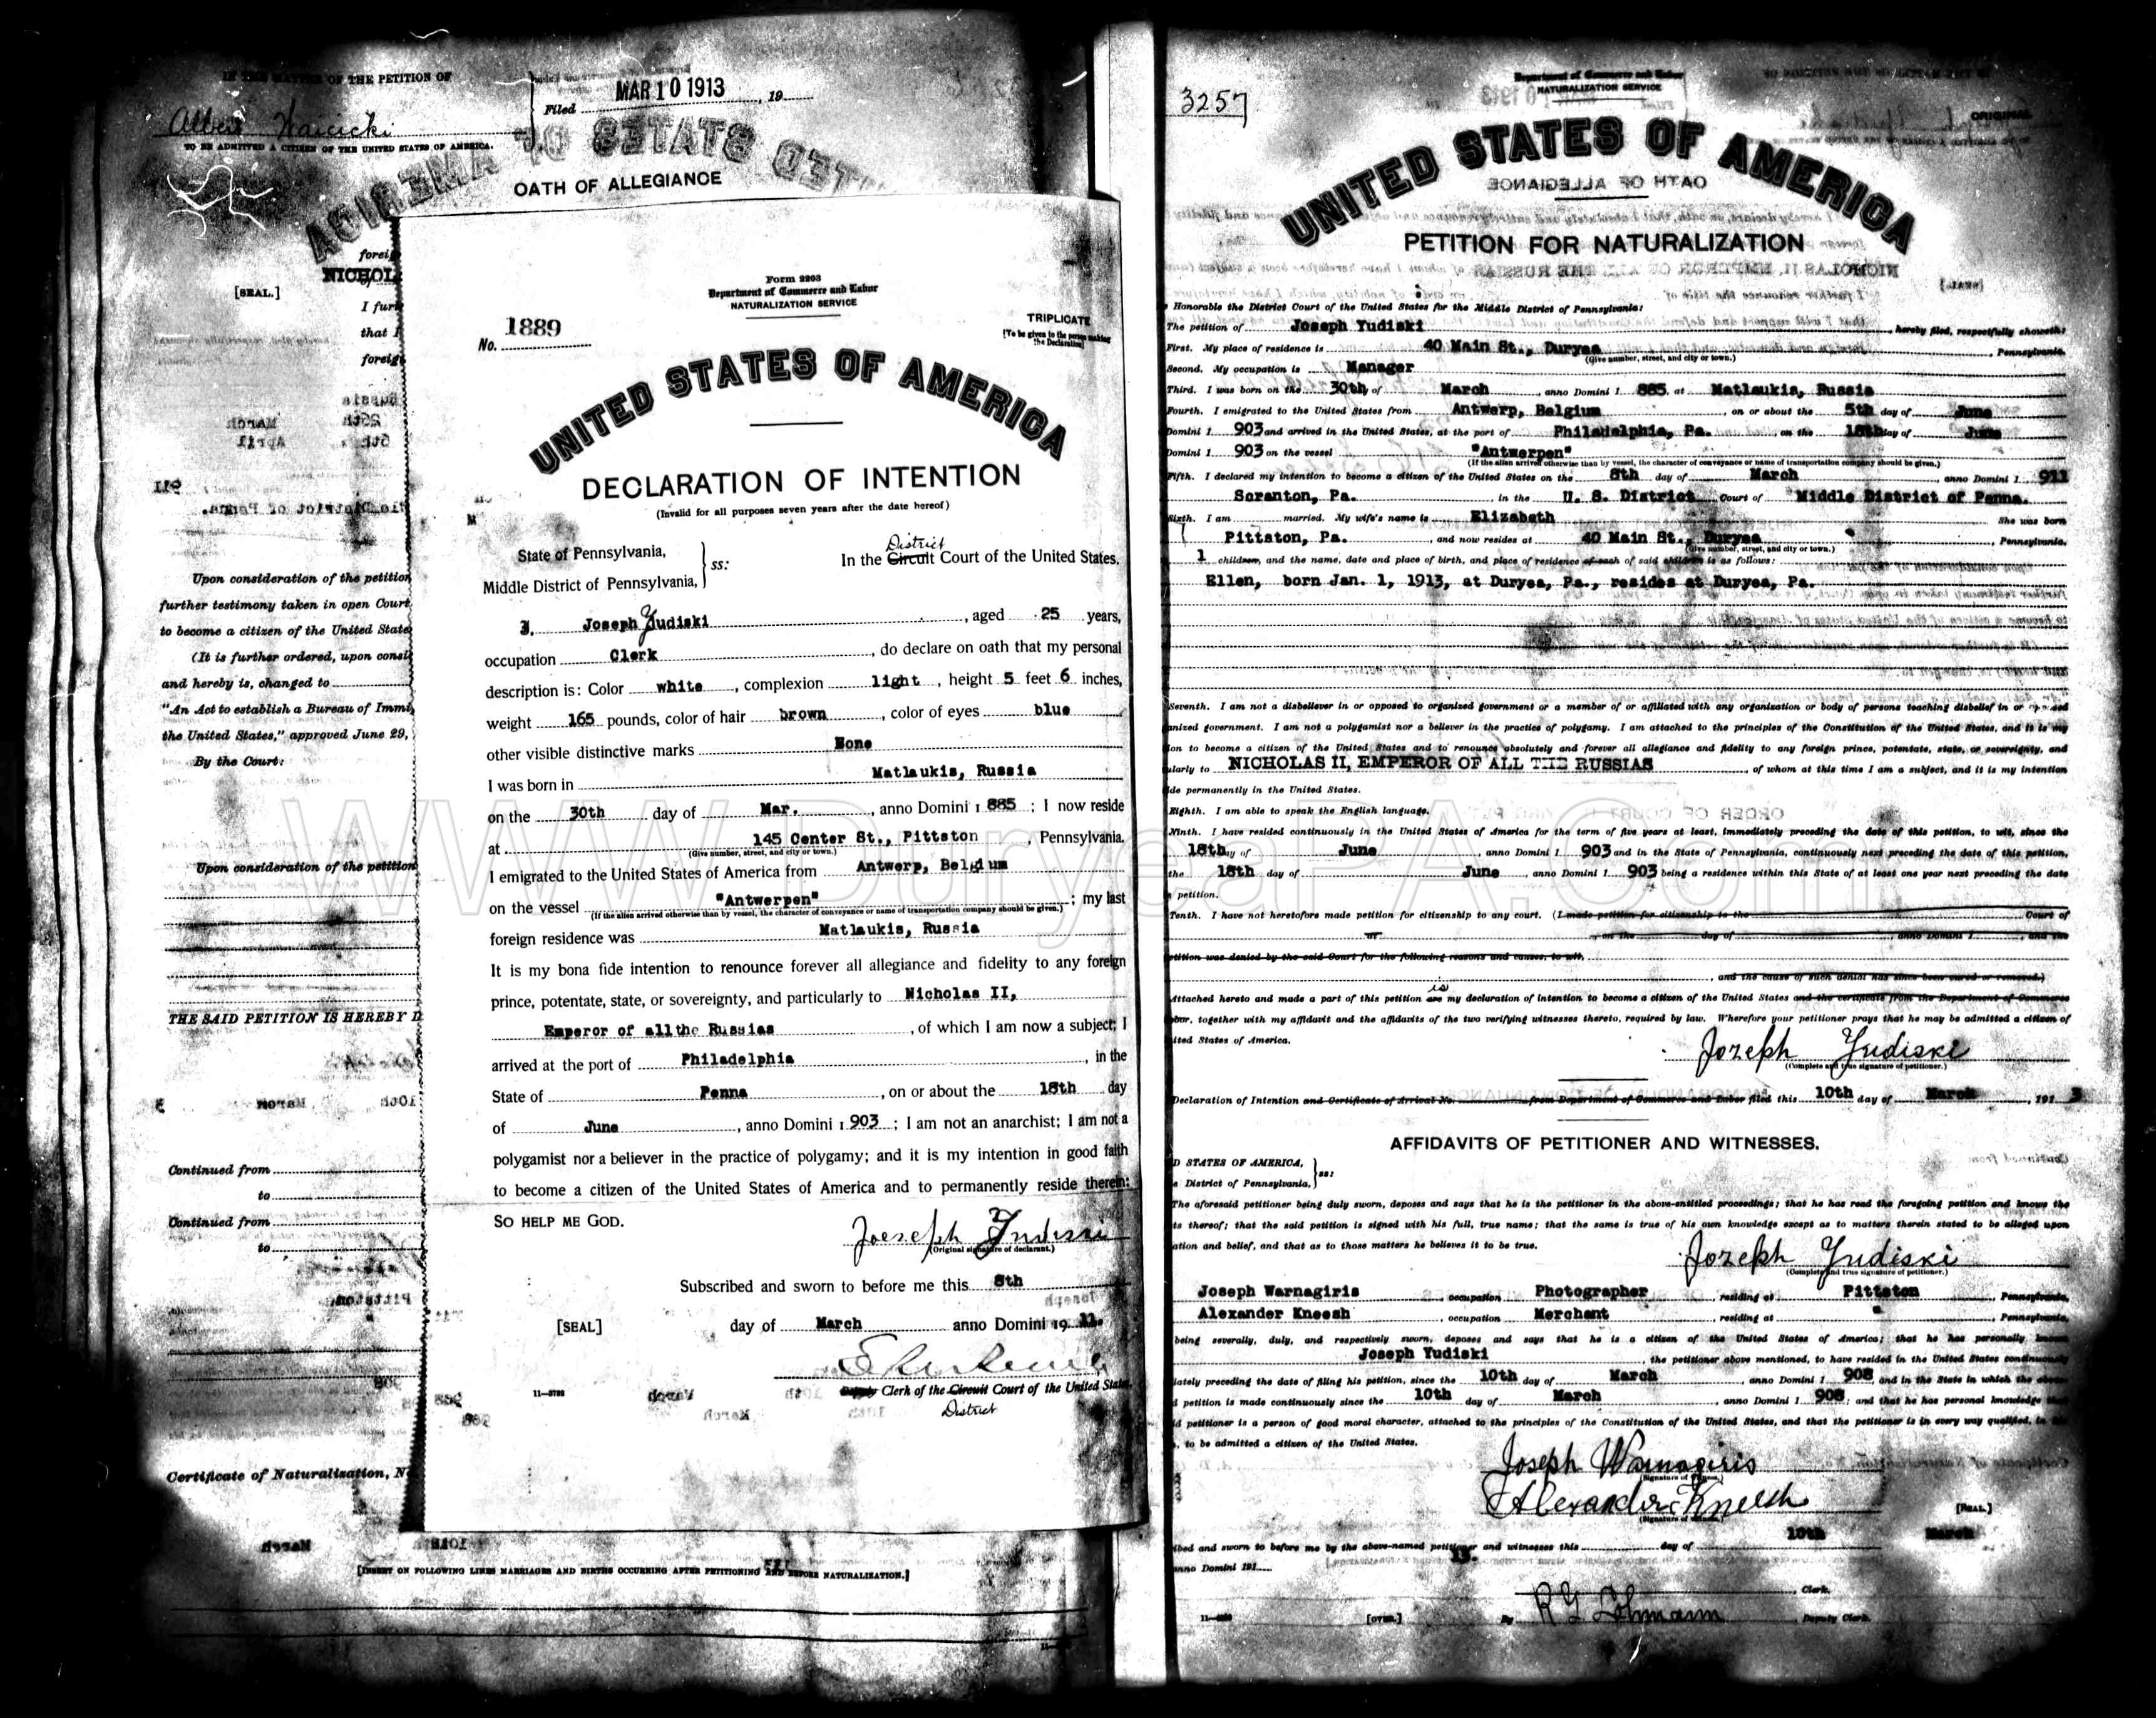 IN THE MATTER OF THE PETITION OF
Albert Waicicki
TO BE ADMITTED A CITIZEN OF THE UNITED STATES OF AMERICA.
Filed MAR 10 1913, 19
OATH OF ALLEGIANCE
[SEAL.]
foreig
NICHOL
I furt
that I
foreig
Upon consideration of the petition
further testimony taken in open Court
to become a citizen of the United State
(It is further ordered, upon consi
and hereby is, changed to
"An Act to establish a Bureau of Immi
the United States," approved June 29,
By the Court:
Upon consideration of the petition
THE SAID PETITION IS HEREBY D
Continued from
to
Continued from
to
Certificate of Naturalization, N
[INSERT ON FOLLOWING LINES MARRIAGES AND BIRTHS OCCURRING AFTER PETITIONING AND BEFORE NATURALIZATION.]
Form 2203
Department of Commerce and Labor
NATURALIZATION SERVICE
No. 1889
TRIPLICATE
[To be given to the person making the Declaration]
UNITED STATES OF AMERICA
DECLARATION OF INTENTION
(Invalid for all purposes seven years after the date hereof)
State of Pennsylvania,
Middle District of Pennsylvania, } ss:
In the Circuit District Court of the United States.
I, Joseph Yudiski, aged 25 years,
occupation Clerk, do declare on oath that my personal
description is: Color white, complexion light, height 5 feet 6 inches,
weight 165 pounds, color of hair brown, color of eyes blue
other visible distinctive marks None
I was born in Matlaukis, Russia
on the 30th day of Mar., anno Domini 1 885; I now reside
at 145 Center St., Pittston, Pennsylvania.
(Give number, street, and city or town.)
I emigrated to the United States of America from Antwerp, Belgium
on the vessel "Antwerpen"; my last
(If the alien arrived otherwise than by vessel, the character of conveyance or name of transportation company should be given.)
foreign residence was Matlaukis, Russia
It is my bona fide intention to renounce forever all allegiance and fidelity to any foreign
prince, potentate, state, or sovereignty, and particularly to Nicholas II,
Emperor of all the Russias, of which I am now a subject; I
arrived at the port of Philadelphia, in the
State of Penna, on or about the 18th day
of June, anno Domini 1 903; I am not an anarchist; I am not a
polygamist nor a believer in the practice of polygamy; and it is my intention in good faith
to become a citizen of the United States of America and to permanently reside therein:
SO HELP ME GOD.
Joeseph Yudiski
(Original signature of declarant.)
Subscribed and sworn to before me this 8th
[SEAL]
day of March anno Domini 19 11.
Deputy Clerk of the Circuit Court of the United States.
District
11-2793
3257
Department of Commerce and Labor
NATURALIZATION SERVICE
ORIGINAL
UNITED STATES OF AMERICA
PETITION FOR NATURALIZATION
Honorable the District Court of the United States for the Middle District of Pennsylvania:
The petition of Joseph Yudiski, hereby filed, respectfully showeth:
First. My place of residence is 40 Main St., Duryea, Pennsylvania.
(Give number, street, and city or town.)
Second. My occupation is Manager
Third. I was born on the 30th of March, anno Domini 1 885, at Matlaukis, Russia
Fourth. I emigrated to the United States from Antwerp, Belgium, on or about the 5th day of June
Domini 1 903 and arrived in the United States, at the port of Philadelphia, Pa., on the 18th day of June
Domini 1 903 on the vessel "Antwerpen"
(If the alien arrived otherwise than by vessel, the character of conveyance or name of transportation company should be given.)
Fifth. I declared my intention to become a citizen of the United States on the 8th day of March, anno Domini 1 911
Scranton, Pa., in the U. S. District Court of Middle District of Penna.
Sixth. I am married. My wife's name is Elizabeth She was born
Pittston, Pa., and now resides at 40 Main St., Duryea, Pennsylvania.
(Give number, street, and city or town.)
1 children, and the name, date and place of birth, and place of residence of each of said children is as follows:
Ellen, born Jan. 1, 1913, at Duryea, Pa., resides at Duryea, Pa.
Seventh. I am not a disbeliever in or opposed to organized government or a member of or affiliated with any organization or body of persons teaching disbelief in or opposed
anized government. I am not a polygamist nor a believer in the practice of polygamy. I am attached to the principles of the Constitution of the United States, and it is my
ion to become a citizen of the United States and to renounce absolutely and forever all allegiance and fidelity to any foreign prince, potentate, state, or sovereignty, and
ularly to NICHOLAS II, EMPEROR OF ALL THE RUSSIAS, of whom at this time I am a subject, and it is my intention
de permanently in the United States.
Eighth. I am able to speak the English language.
Ninth. I have resided continuously in the United States of America for the term of five years at least, immediately preceding the date of this petition, to wit, since the
18th day of June, anno Domini 1 903 and in the State of Pennsylvania, continuously next preceding the date of this petition,
the 18th day of June, anno Domini 1 903 being a residence within this State of at least one year next preceding the date
petition.
Tenth. I have not heretofore made petition for citizenship to any court. (I made petition for citizenship to the Court of
at on the day of anno Domini 1, and the
etition was denied by the said Court for the following reasons and causes, to wit,
, and the cause of such denial has since been cured or removed.)
Attached hereto and made a part of this petition are is my declaration of intention to become a citizen of the United States and the certificate from the Department of Commerce
abor, together with my affidavit and the affidavits of the two verifying witnesses thereto, required by law. Wherefore your petitioner prays that he may be admitted a citizen of
ited States of America.
Jozeph Yudiski
(Complete and true signature of petitioner.)
Declaration of Intention and Certificate of Arrival No. from Department of Commerce and Labor filed this 10th day of March, 191 3
AFFIDAVITS OF PETITIONER AND WITNESSES.
D STATES OF AMERICA,
e District of Pennsylvania, } ss:
The aforesaid petitioner being duly sworn, deposes and says that he is the petitioner in the above-entitled proceedings; that he has read the foregoing petition and knows the
ts thereof; that the said petition is signed with his full, true name; that the same is true of his own knowledge except as to matters therein stated to be alleged upon
ation and belief, and that as to those matters he believes it to be true.
Jozeph Yudiski
(Complete and true signature of petitioner.)
Joseph Warnagiris occupation Photographer, residing at Pittston, Pennsylvania,
Alexander Kneesh, occupation Merchant, residing at ", Pennsylvania,
being severally, duly, and respectively sworn, deposes and says that he is a citizen of the United States of America; that he has personally known
Joseph Yudiski the petitioner above mentioned, to have resided in the United States continuously
iately preceding the date of filing his petition, since the 10th day of March, anno Domini 1 908, and in the State in which the above
d petition is made continuously since the 10th day of March, anno Domini 1 908; and that he has personal knowledge that
id petitioner is a person of good moral character, attached to the principles of the Constitution of the United States, and that the petitioner is in every way qualified, in his
, to be admitted a citizen of the United States.
Joseph Warnagiris
(Signature of witness.)
Alexander Kneesh
(Signature of witness.)
[SEAL.]
ibed and sworn to before me by the above-named petitioner and witnesses this 10th day of March
anno Domini 191 13.
, Clerk.
[OVER.]
By, Deputy Clerk.
WWW.DuryeaPA.Com